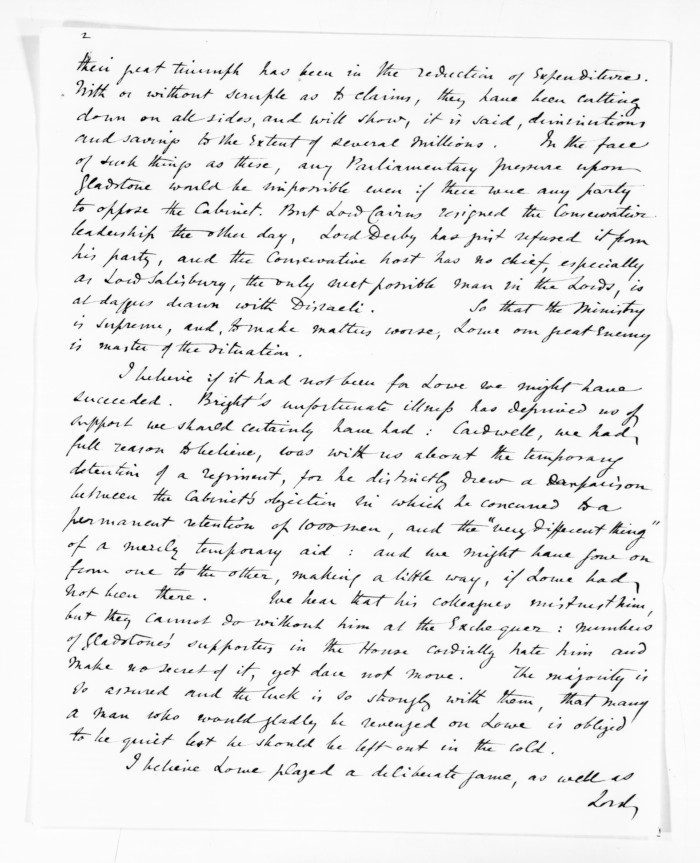 2
their great triumph has been in the reduction of Expenditure.
With or without scruple as to claims, they have been cutting
down on all sides, and will show, it is said, diminutions
and savings to the Extent of several Millions. In the face
of such things as these, any Parliamentary pressure upon
Gladstone would be impossible even if there were any party
to oppose the Cabinet. But Lord Cairns resigned the Conservative
leadership the other day, Lord Derby has just refused it from
his party, and the Conservative host has no chief, especially
as Lord Salisbury, the only next possible man in the Lords, is
at daggers drawn with Disraeli. So that the Ministry
is supreme, and, to make matters worse, Lowe our great Enemy
is master of the situation.
I believe if it had not been for Lowe we might have
succeeded. Bright's unfortunate illness has deprived us of
support we should certainly have had: Cardwell, we had,
full reason to believe, was with us about the temporary
detention of a regiment, for he distinctly drew a comparison
between the Cabinet's objection in which he concurred to a
permanent retention of 1000 men, and the "very different thing"
of a merely temporary aid: and we might have gone on
from one to the other, making a little way, if Lowe had
not been there. We hear that his colleagues mistrust him,
but they cannot do without him at the Exchequer: numbers
of Gladstone's supporters in the House cordially hate him and
make no secret of it, yet dare not move. The majority is
so assured and the luck is so strongly with them, that many
a man who would gladly be revenged on Lowe is obliged
to be quiet lest he should be left out in the cold.
I believe Lowe played a deliberate game, as well as
Lord